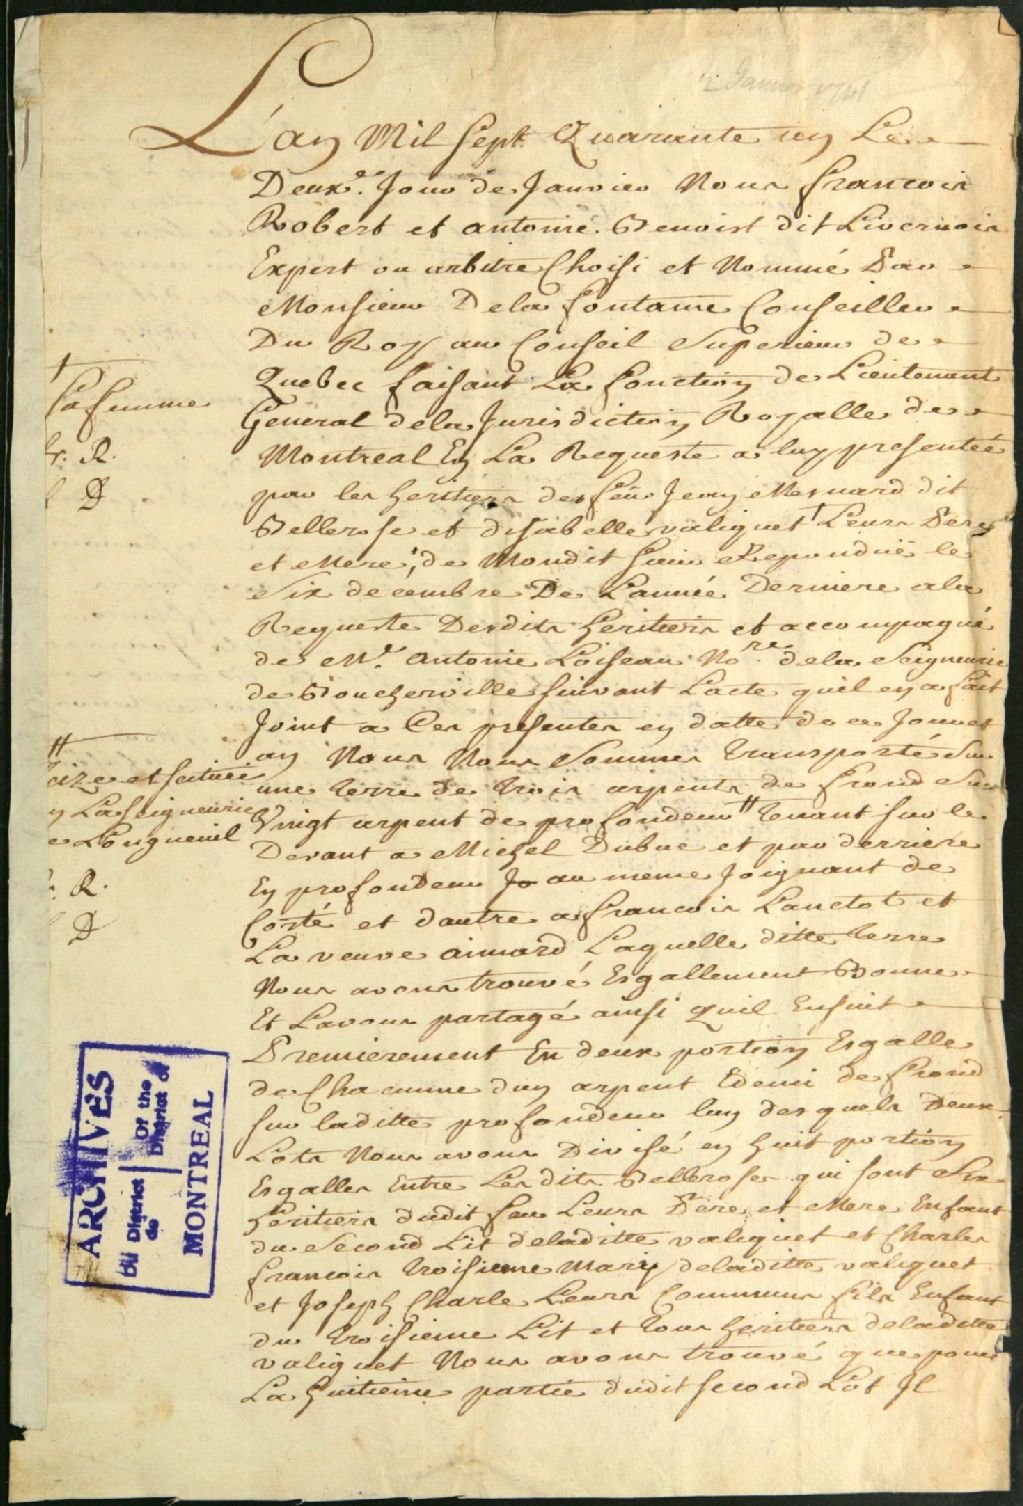 2 Janvier 1741
L'an Mil Sept Quarante un Le
Deuxe. Jour de Janvier Nous francois
Robert et antoine Benoist dit Livernois
Expert ou arbitre Choisi et Nommé Par
Monsieur De la fontaine Conseiller
Du Roy au Conseil Superieur de
Quebec faisant La fonction de Lieutenant
General de la Jurisdiction Royalle de
Montreal En La Requeste a luy presentée
par les heritiers de feu Jean Mesnard dit
Bellerose et disabelle valiquet † Leurs Pere
et Mere, de Mondit sieur Repondüe le
Six decembre De L'année Derniere a la
Requeste Desdits heritiers et accompagné
de Me. Antoine Loiseau Nore. de la Seigneurie
de Boucherville suivant Lacte quil en a fait
Joint a Ces presentes en datte de ce Jour et
an Nous Nous Sommes transporté Sur
une terre de trois arpents de frond Sur
Vingt arpent de profondeur # tenant sur le
Devant a Michel Dubuc et par derriere
En profondeur Jo au meme Joignant de
Costé et dautre a francois Lanctot et
La veuve aimard Laquelle ditte terre
Nous avons trouvé Esgallement Bonne
Et Lavons partagé ainsi Quil Ensuit
Premierement En deux portion Esgalle
de Chacunne dun arpent Edemi de frond
sur laditte profondeur lun desquels Deux
Lots Nous avons Divisé en huit portion
Esgalles Entre Lesdits Bellerose qui sont Six
heritiers dudit feu Leurs Pere et Mere Enfant
du Second Lit de laditte valiquet et Charles
francois troisieme Mary de laditte valiquet
et Joseph Charle Leurs Communs fils Enfant
du troisieme Lit et tous heritiers de laditte
valiquet Nous avons trouvé que pour
La huitieme partie dudit second Lot Il
†
sa femme
R.
D
#
et scituée
La Seigneurie
Longueuil
R.
D
ARCHIVES
Du District
de
Of the
District of
MONTREAL